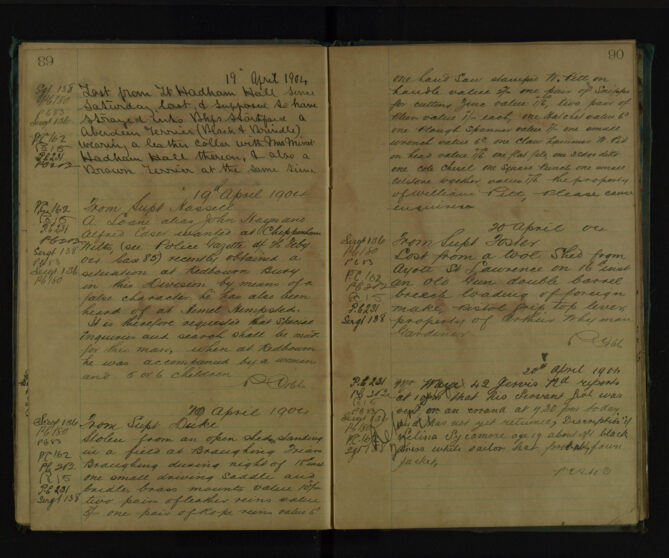 89
19th April 1904
Sgt 138
PC 180
PC 83
Sergt 136
PC 162
PC 231
Lost from Lt Hadham Hall since
Saturday last & supposed to have
strayed into B'hps Stortford a
Aberdeen Terrier (Black & Brindle)
wearing a leather collar with Mrs
Hadham Hall thereon, & also a
Brown Terrier at the same time
19th April 1904
PC 162
R 15
PC 231
PC 202
Sergt
PC 83
Sergt 136
PC 180
From Supt Hassell
A. Soane alias John Hayman
Alfred Eden wanted at Chippenham
Wilts, (see Police Gazette
recently obtained a
situation at Redbourn Bury
in this Division by means of a
false character, he has also been
heard of at Hemel Hempsted.
It is therefore requested that special
Inquiries and search shall be made
for this man, when at Redbourn
he was accompanied by a woman
and 5 or 6 children
April 1904
Sergt 136
PC 180
PC 83
PC 162
PC 202
R 15
PC 231
Sergt 138
From Supt Duke
Stolen from an open Shed standing
in a field at Braughing Friars
Braughing during night of 18 inst
one small driving Saddle and
bridle, brass mounts, value 15/-
two pair of leather reins value
5/- one pair of Rope reins value 6d
90
one hand Saw stamped W. Pett on
handle value 2/- one pair of Snipps
for cutting Zinc value 1/6, two pair of
value 1/- each, one Satchel value 6d
one Plough Spanner value 1/- one small
wrench value 6d one Claw Hammer W. Pett
on head value 1/6 one flat file one
one cold chisel one Square Punch one small
together value 1/6 the property
of William Pett, Please cause
inquiries
20 April 04
Sergt 136
PC 180
PC 83
PC 162
PC 202
R 15
PC 231
Sergt 138
From Supt Foster
Lost from a tool Shed from
Ayott St Lawrence on 16 inst
an old Gun double barrel
breech loading of foreign
make, Pistol grip top lever
property of Arthur
Gardiner
20th April 1904
PC 231
PC 202
R 15
Sergt 136
PC 180
PC 162
Mr 42 Jervis Rd reports
at that his Servant Girl was
sent on an errand at 7.30 pm today
and has not yet returned, Description
Sycamore aged about black
dress white sailor hat fawn
jacket,